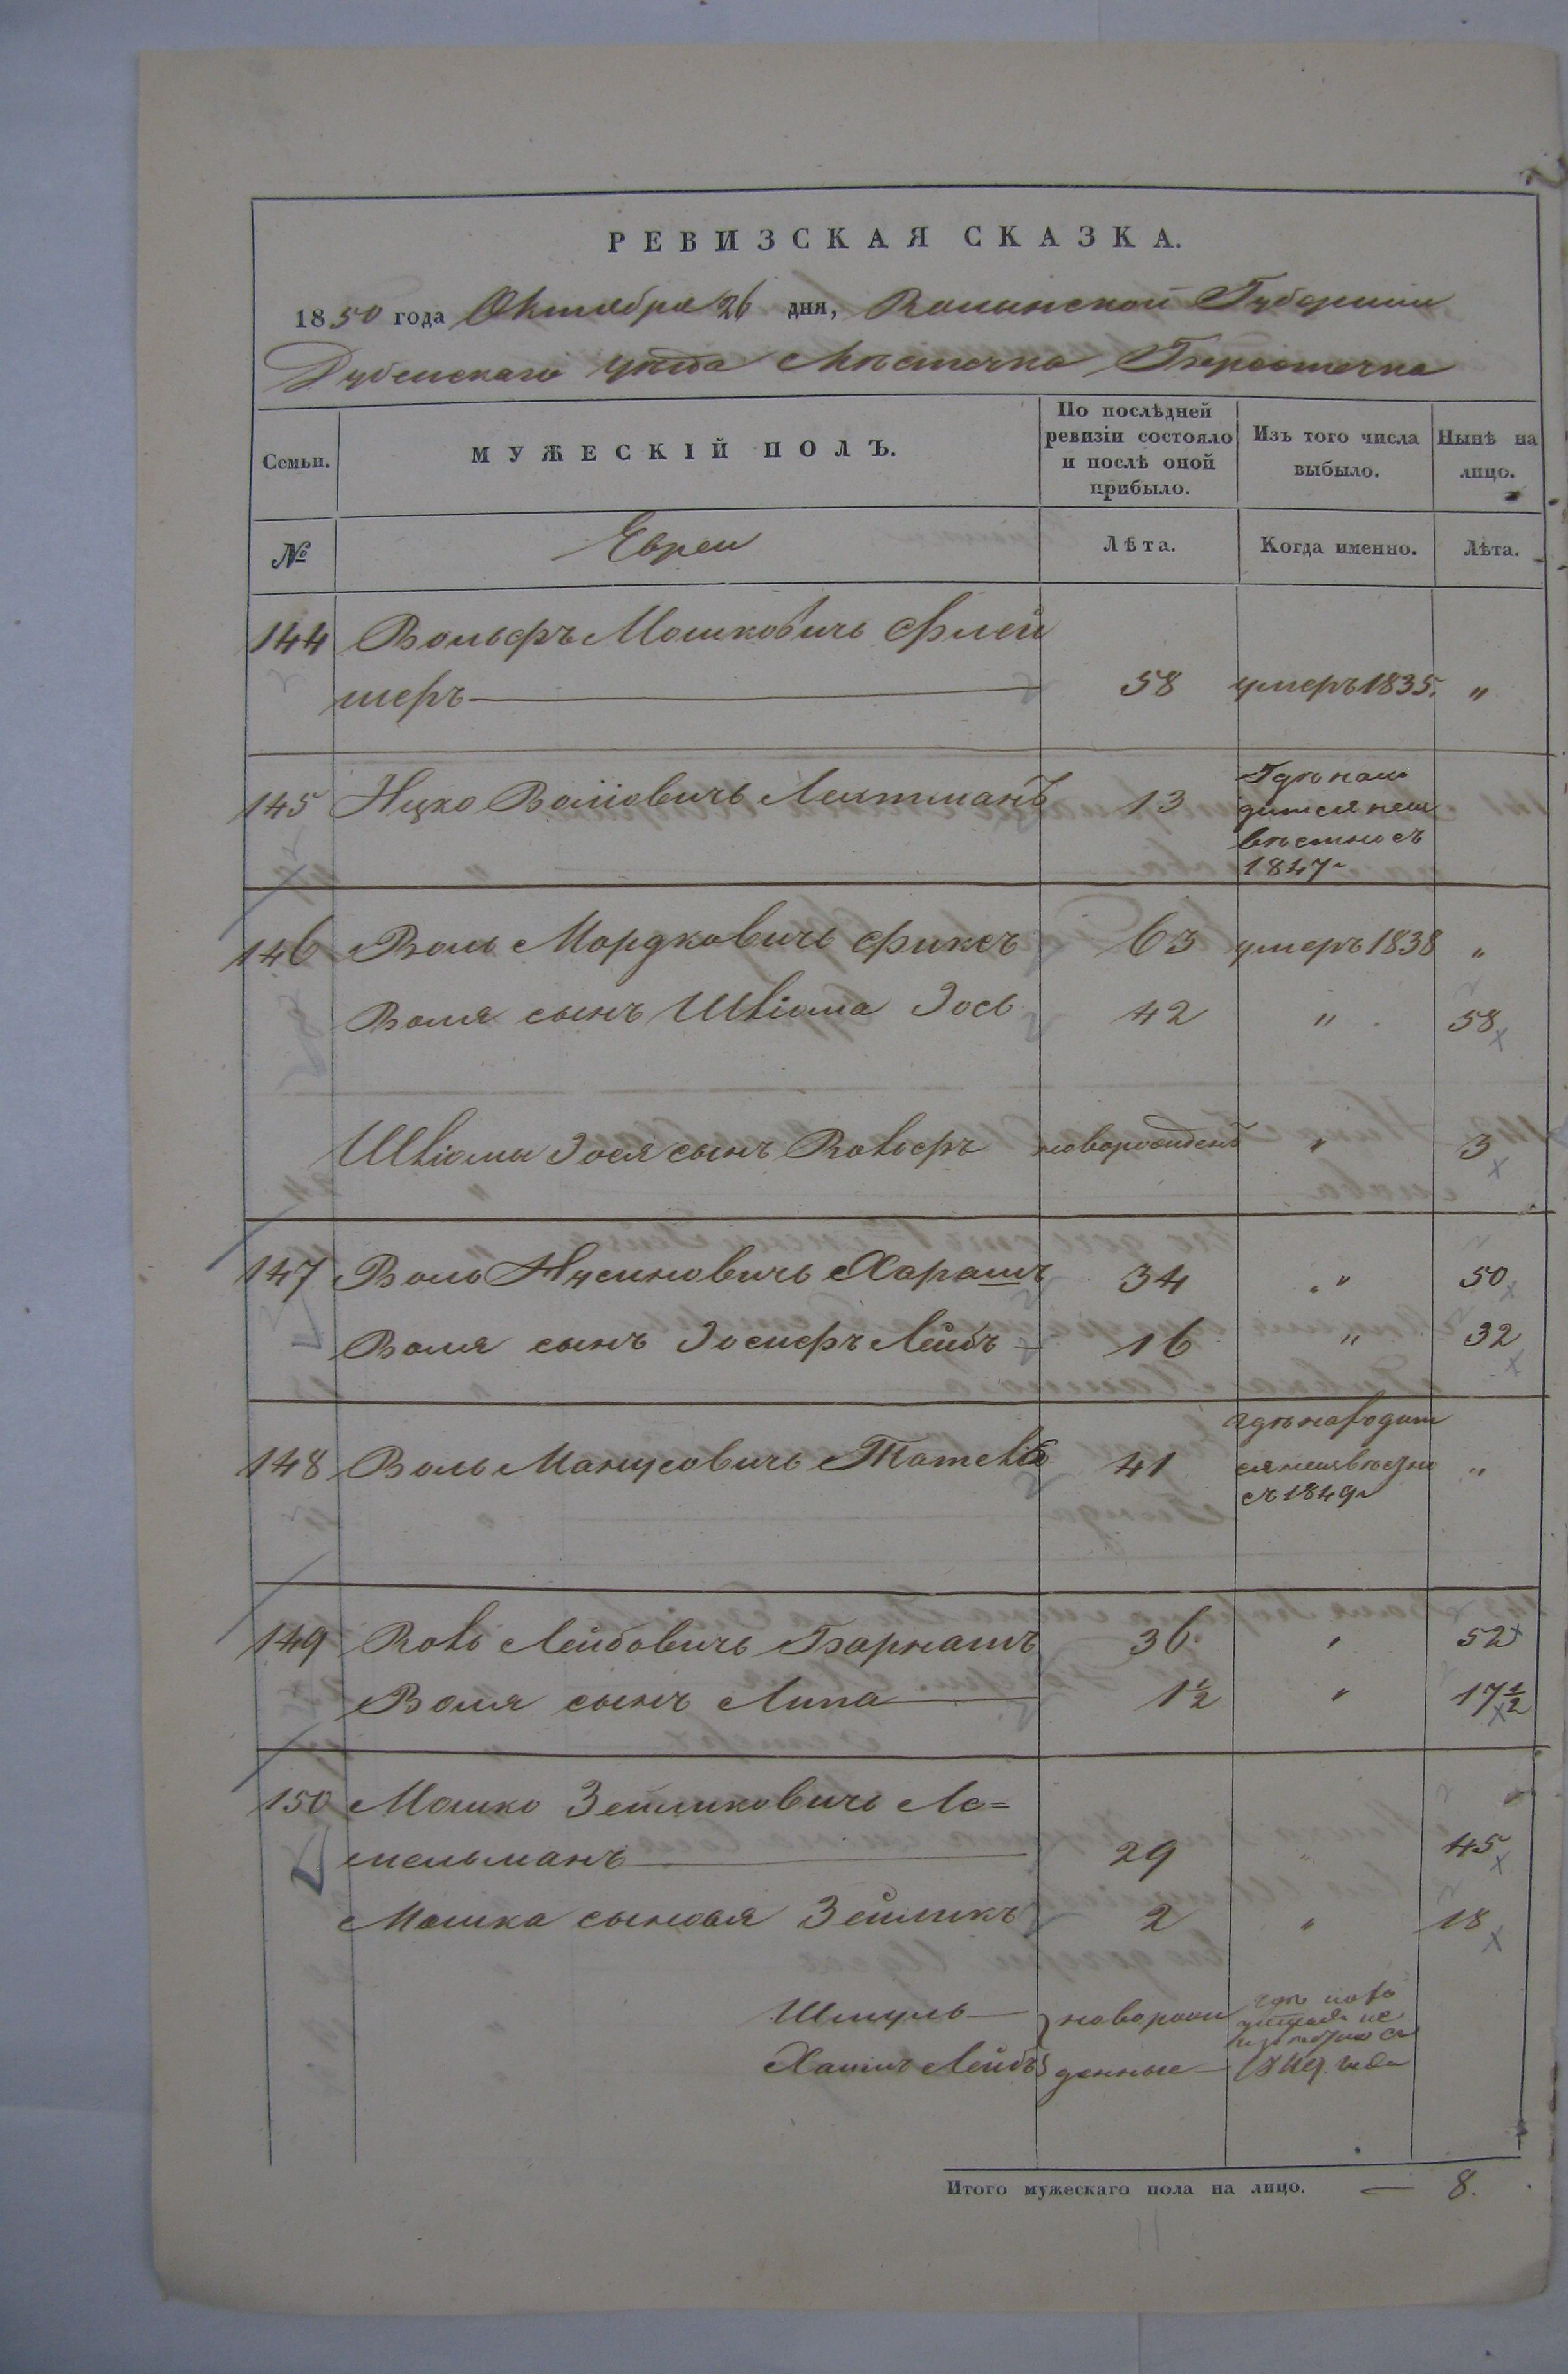 РЕВИЗСКАЯ СКАЗКА.
1850 года Октября 26 дня, Волынской Губерніи
Дубенскаго уѣзда Мѣстечка Берестечка
Семьи.
МУЖЕСКІЙ ПОЛЪ.
По послѣдней ревизіи состояло и послѣ оной прибыло.
Изъ того числа выбыло.
Нынѣ на лицо.
№
Евреи
Лѣта.
Когда именно.
Лѣта.
144 Вольфъ Мошковичь Флей
шеръ 58 умеръ 1835. "
145 Ицко Волiовичь Лехтманъ 13 Гдѣ нахо
дится неиз
вѣстно съ
1847
146 Воль Мордковичь Фиксъ 63 умеръ 1838 "
Воля сынъ Шліома Іось 42 " 58
Шліомы Іося сынъ Вольфъ новорожденъ " 3
147 Воль Нусиновичь Харашъ 34 " 50
Воля сынъ Іосифъ Лейбъ 16 " 32
148 Воль Манусовичь 41 гдѣ находит
ся неизвѣстно "
съ 1849
149 Воль Лейбовичь Барнашъ 36 " 52
Воля сынъ Липа 1½ " 17½
150 Мошко Зейликовичь Ле=
мельманъ 29 " 45
Мошка сыновя Зейликъ 2 " 18
Шмуль
Хаимъ Лейбъ
новорож
денные
гдѣ нахо
дится не
извѣстно съ
1849 года
Итого мужескаго пола на лицо. — 8.